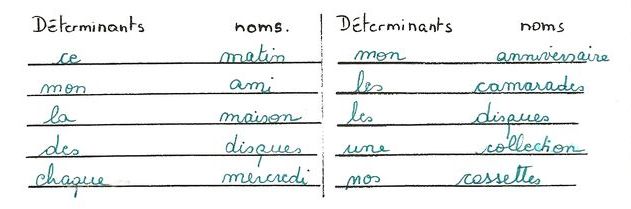 Déterminants noms. Déterminants noms
ce matin mon anniversaire
mon ami les camarades
la maison les disques
des disques une collection
chaque mercredi nos cassettes